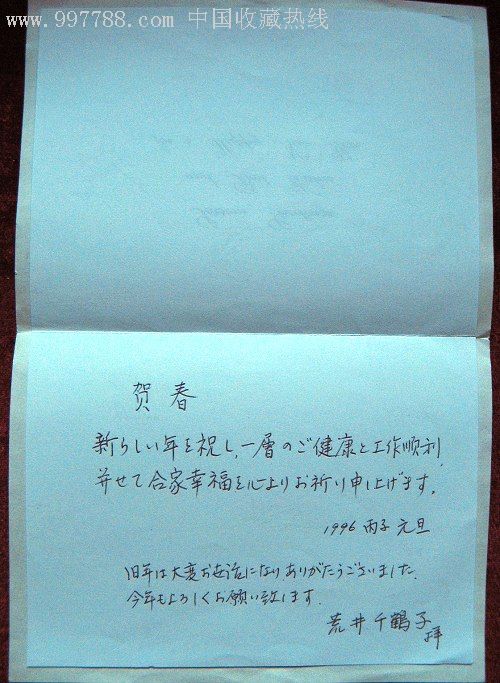 www.997788.com 中国收藏热线
贺春
新らしい年を祝し、一層のご健康と工作順利、
并せて合家幸福を心よりお祈り申上げます。
1996 丙子 元旦
旧年は大変お世话になりありがとうございました。
今年もよろしくお願い致します。
荒井千鶴子
拝